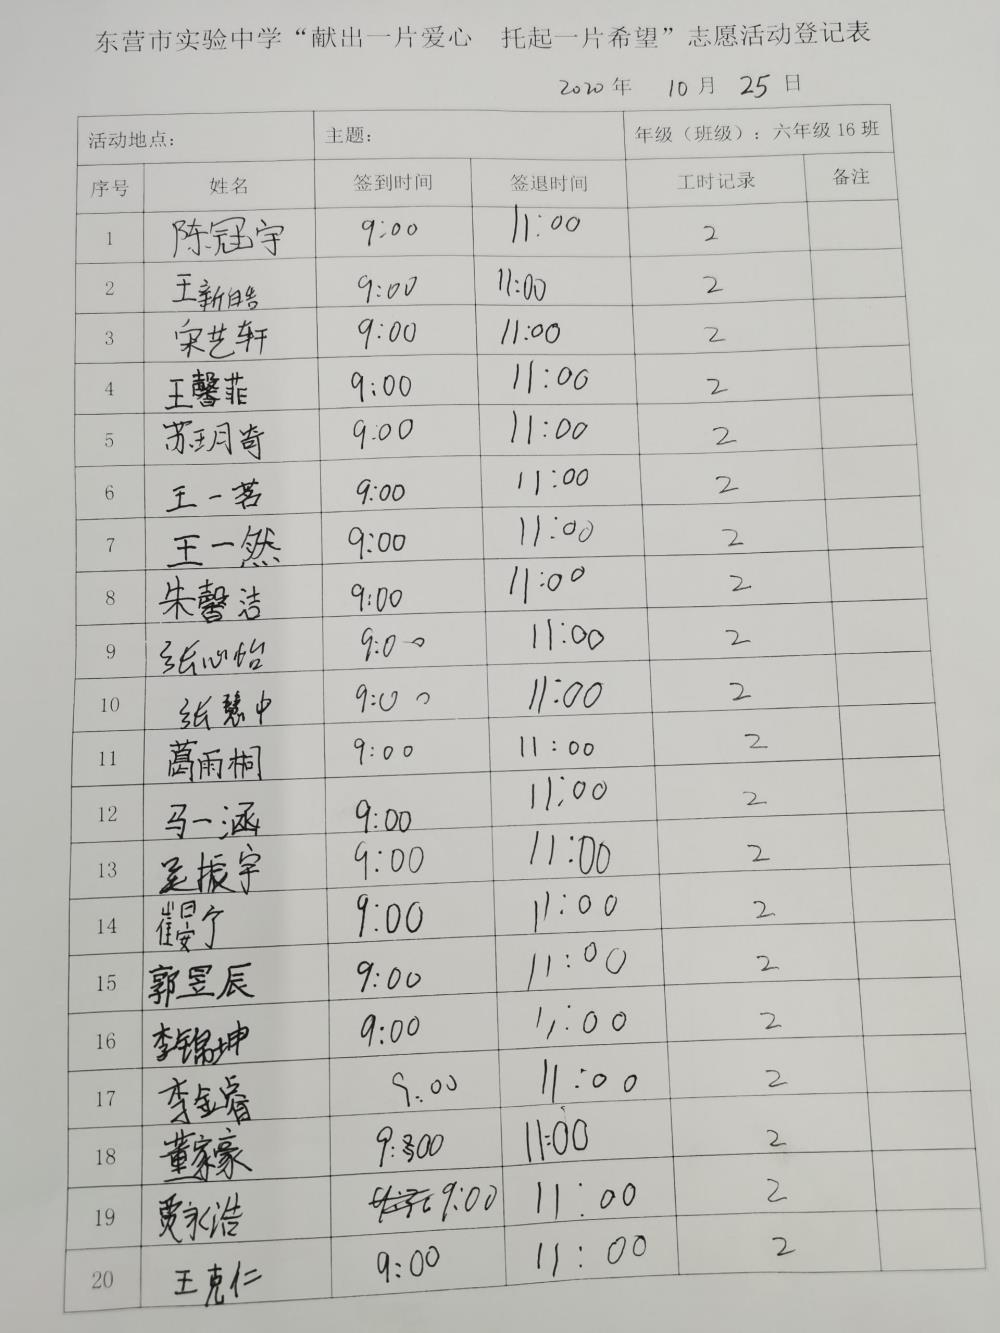 东营市实验中学“献出一片爱心 托起一片希望”志愿活动登记表
2020年 10月 25日
活动地点： 主题： 年级（班级）：六年级16班
序号 姓名 签到时间 签退时间 工时记录 备注
1 陈冠宇 9:00 11:00 2
2 王新皓 9:00 11:00 2
3 宋艺轩 9:00 11:00 2
4 王馨菲 9:00 11:00 2
5 苏玥奇 9:00 11:00 2
6 王一茗 9:00 11:00 2
7 王一然 9:00 11:00 2
8 朱馨洁 9:00 11:00 2
9 张心怡 9:00 11:00 2
10 张慧中 9:00 11:00 2
11 葛雨桐 9:00 11:00 2
12 马一涵 9:00 11:00 2
13 吴振宇 9:00 11:00 2
14 崔晏宁 9:00 11:00 2
15 郭昱辰 9:00 11:00 2
16 李锦坤 9:00 11:00 2
17 李金睿 9:00 11:00 2
18 董家豪 9:00 11:00 2
19 贾永浩 9:00 11:00 2
20 王克仁 9:00 11:00 2